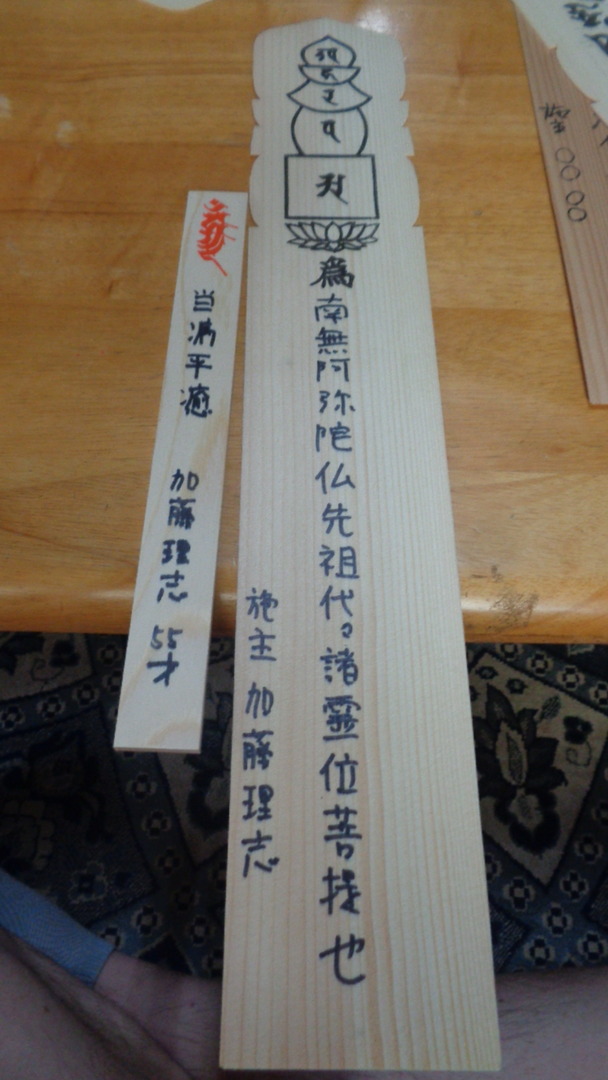 爲南無阿弥陀仏先祖代々諸霊位菩提也
施主 加藤理志
当病平癒 加藤理志 55才
施主 〇〇〇〇